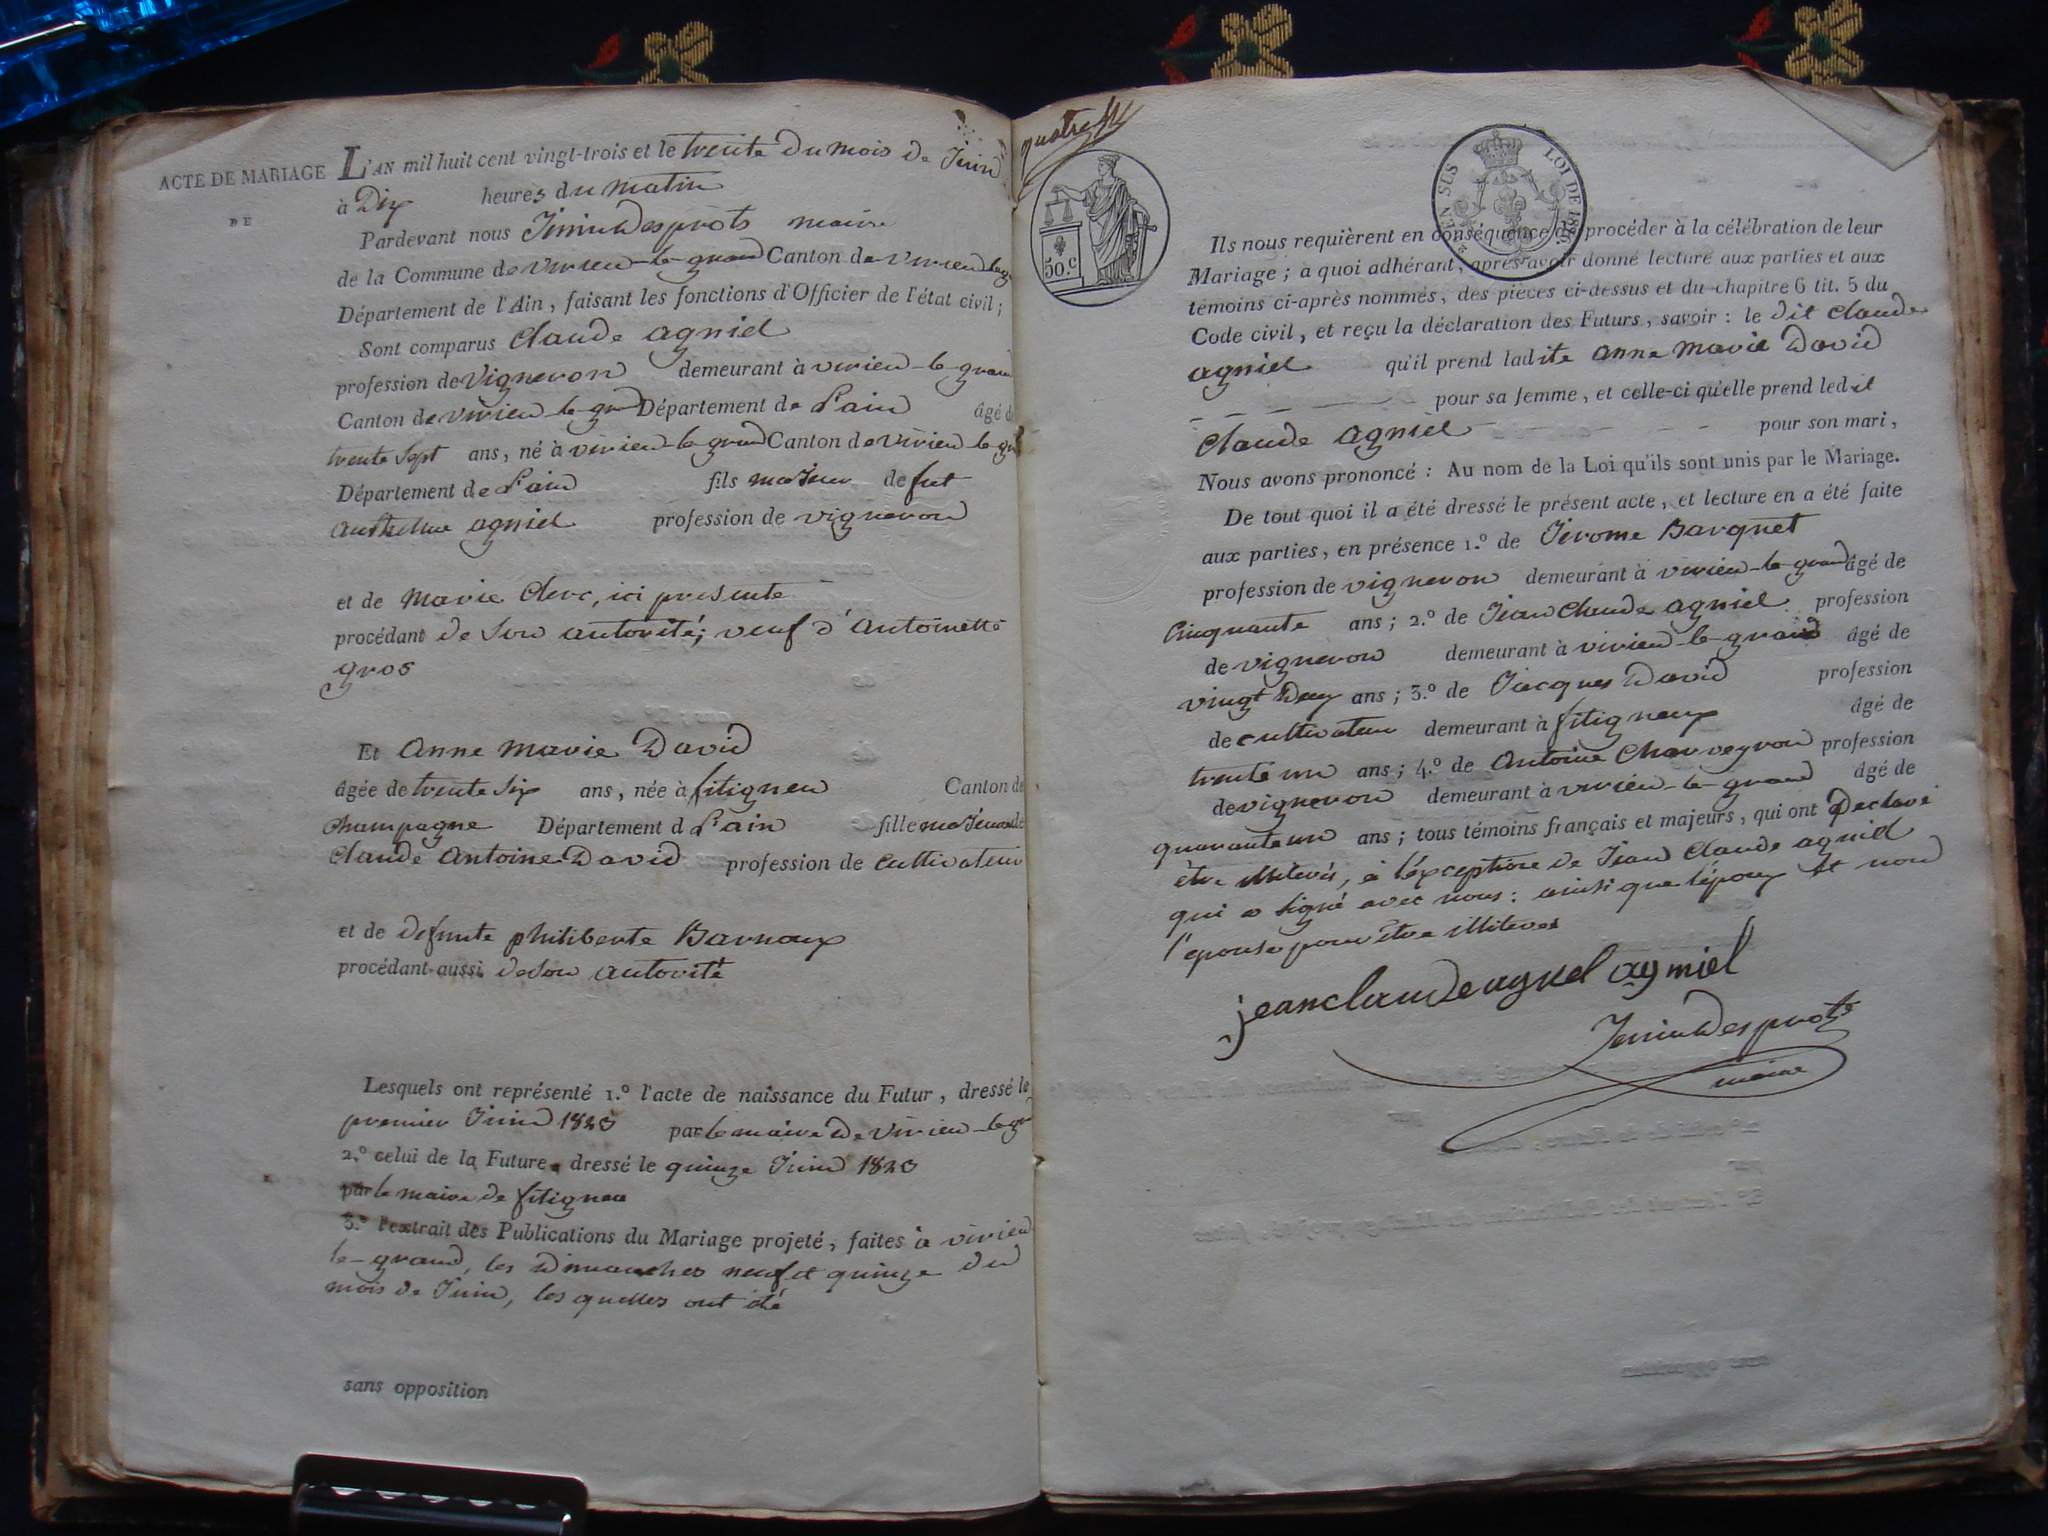 ACTE DE MARIAGE
DE
L'AN mil huit cent vingt-trois et le trente du mois de Juin
à Dix heures du matin
Pardevant nous Desprots maire
de la Commune de virieu-le-grand Canton de virieu le g
Département de l'Ain, faisant les fonctions d'Officier de l'état civil;
Sont comparus Claude agniel
profession de Vigneron demeurant à virieu-le-grand
Canton de virieu le grand Département de L'ain âgé de
trente sept ans, né à virieu-le-grand Canton de virieu le-gr
Département de L'ain fils majeur de fut
anthelme agniel profession de vigneron
et de marie Clerc, ici présente
procédant de son autorité; veuf d'antoinette
gros
Et anne marie David
âgée de trente six ans, née à fitignieu Canton de
Champagne Département d L'ain fille majeure de
Claude antoine David profession de cultivateur
et de defunte philiberte Barnoux
procédant aussi de son autorité
Lesquels ont représenté 1.º l'acte de naissance du Futur, dressé le
premier Juin 1823 par le maire de virieu-le-gr
2.º celui de la Future dressé le quinze Juin 1823
par le maire de fitignieu
3.º l'extrait des Publications du Mariage projeté, faites à virieu
le-grand, les Dimanches neuf et quinze du
mois de Juin, les quelles ont été
sans opposition
quatre
50.c
EN SUS LOI DE 1816
Ils nous requièrent en conséquence de procéder à la célébration de leur
Mariage; a quoi adhérant, après avoir donné lecture aux parties et aux
témoins ci-après nommés, des pièces ci-dessus et du chapitre 6 tit. 5 du
Code civil, et reçu la déclaration des Futurs, savoir: le dit claude
agniel qu'il prend ladite anne marie David
pour sa femme, et celle-ci qu'elle prend ledit
Claude agniel pour son mari,
Nous avons prononcé: Au nom de la Loi qu'ils sont unis par le Mariage.
De tout quoi il a été dressé le présent acte, et lecture en a été faite
aux parties, en présence 1.º de Jerome Barquet
profession de vigneron demeurant à virieu-le-grand âgé de
Cinquante ans; 2.º de Jean Claude agniel profession
de vigneron demeurant à virieu-le-grand âgé de
vingt Deux ans; 3.º de Jacques David profession
de cultivateur demeurant à fitignieux âgé de
trente un ans; 4.º de antoine Charveyron profession
de vigneron demeurant à virieu-le-grand âgé de
quarante un ans; tous témoins français et majeurs, qui ont Declaré
être illiterés, à l'éxception de Jean Claude agniel
qui a signé avec nous: ainsi que l'époux et non
l'épouse pour être illiteres
jean claude agniel agniel
Desprots
maire